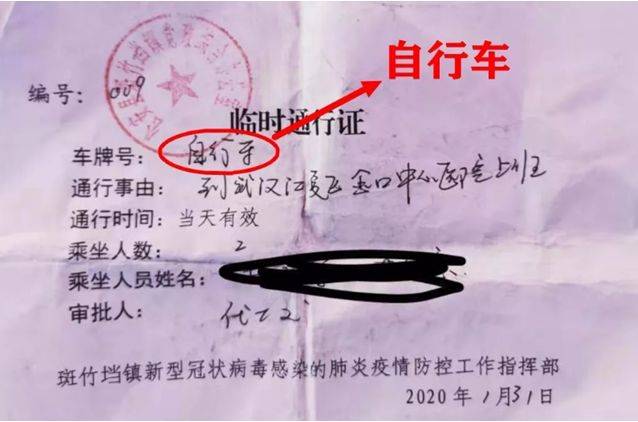 编号: 009
自行车
临时通行证
车牌号: 自行车
通行事由: 到武汉江夏区金口中心医院上班
通行时间: 当天有效
乘坐人数: 2
乘坐人员姓名:
审批人:
斑竹垱镇新型冠状病毒感染的肺炎疫情防控工作指挥部
2020 年 1月31日